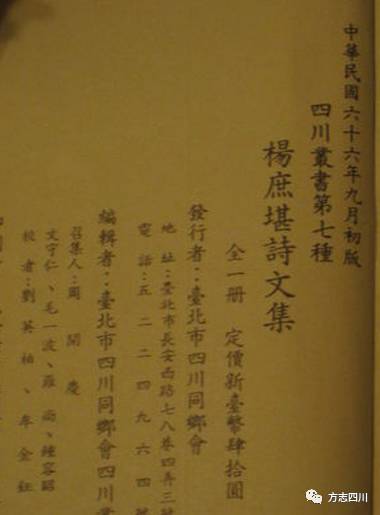 中華民國六十六年九月初版
四川叢書第七種
楊庶堪詩文集
全一冊　定價新臺幣肆拾圓
發行者：臺北市四川同鄉會
地址：臺北市長安西路七八巷四弄三號
電話：五二二四九六四
編輯者：臺北市四川同鄉會四川叢
召集人：周開慶
文守仁、毛一波、羅尚、鍾容昭
校者：劉英柏、牟金鉦
方志四川